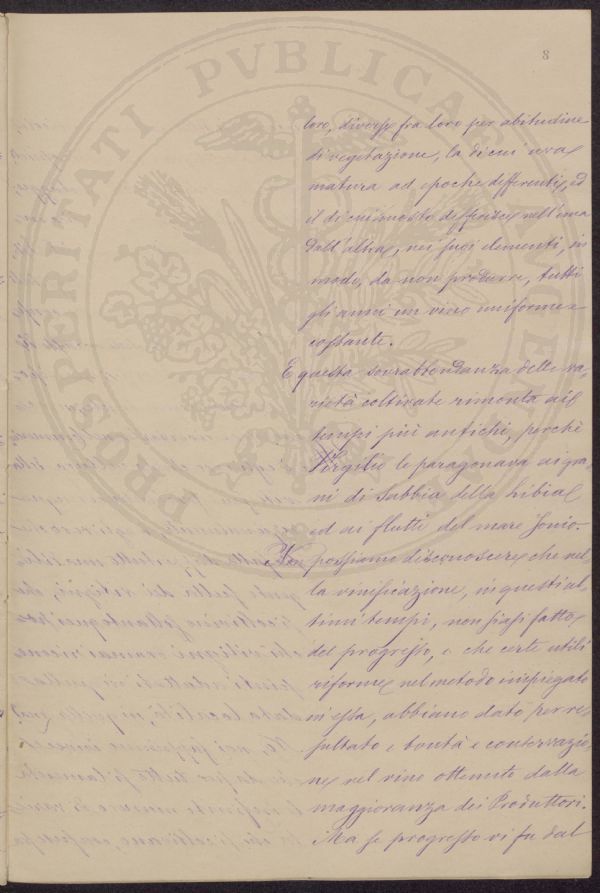 8
PROSPERITATI PVBLICAE
loro, diverse fra loro per abitudine
di vegetazione, la di cui uva
matura ad epoche differenti, ed
il di cui mosto differisce nell'una
dall'altra, nei suoi elementi, in
modo, da non produrre, tutti
gli anni un vino uniforme e
costante.
E questa sovrabbondanza delle va-
rietà coltivate rimonta ai
tempi più antichi, perchè
Virgilio le paragonava ai gra-
ni di Sabbia della Libia
ed ai flutti del mare Jonio.
Non possiamo disconoscere che nel-
la vinificazione, in questi ul-
timi tempi, non siasi fatto
del progresso, e che certe utili
riforme nel metodo impiegato
in essa, abbiano dato per re-
sultato e bontà e conservazio-
ne nel vino ottenuto dalla
maggioranza dei Produttori.
Ma se progresso vi fu dal